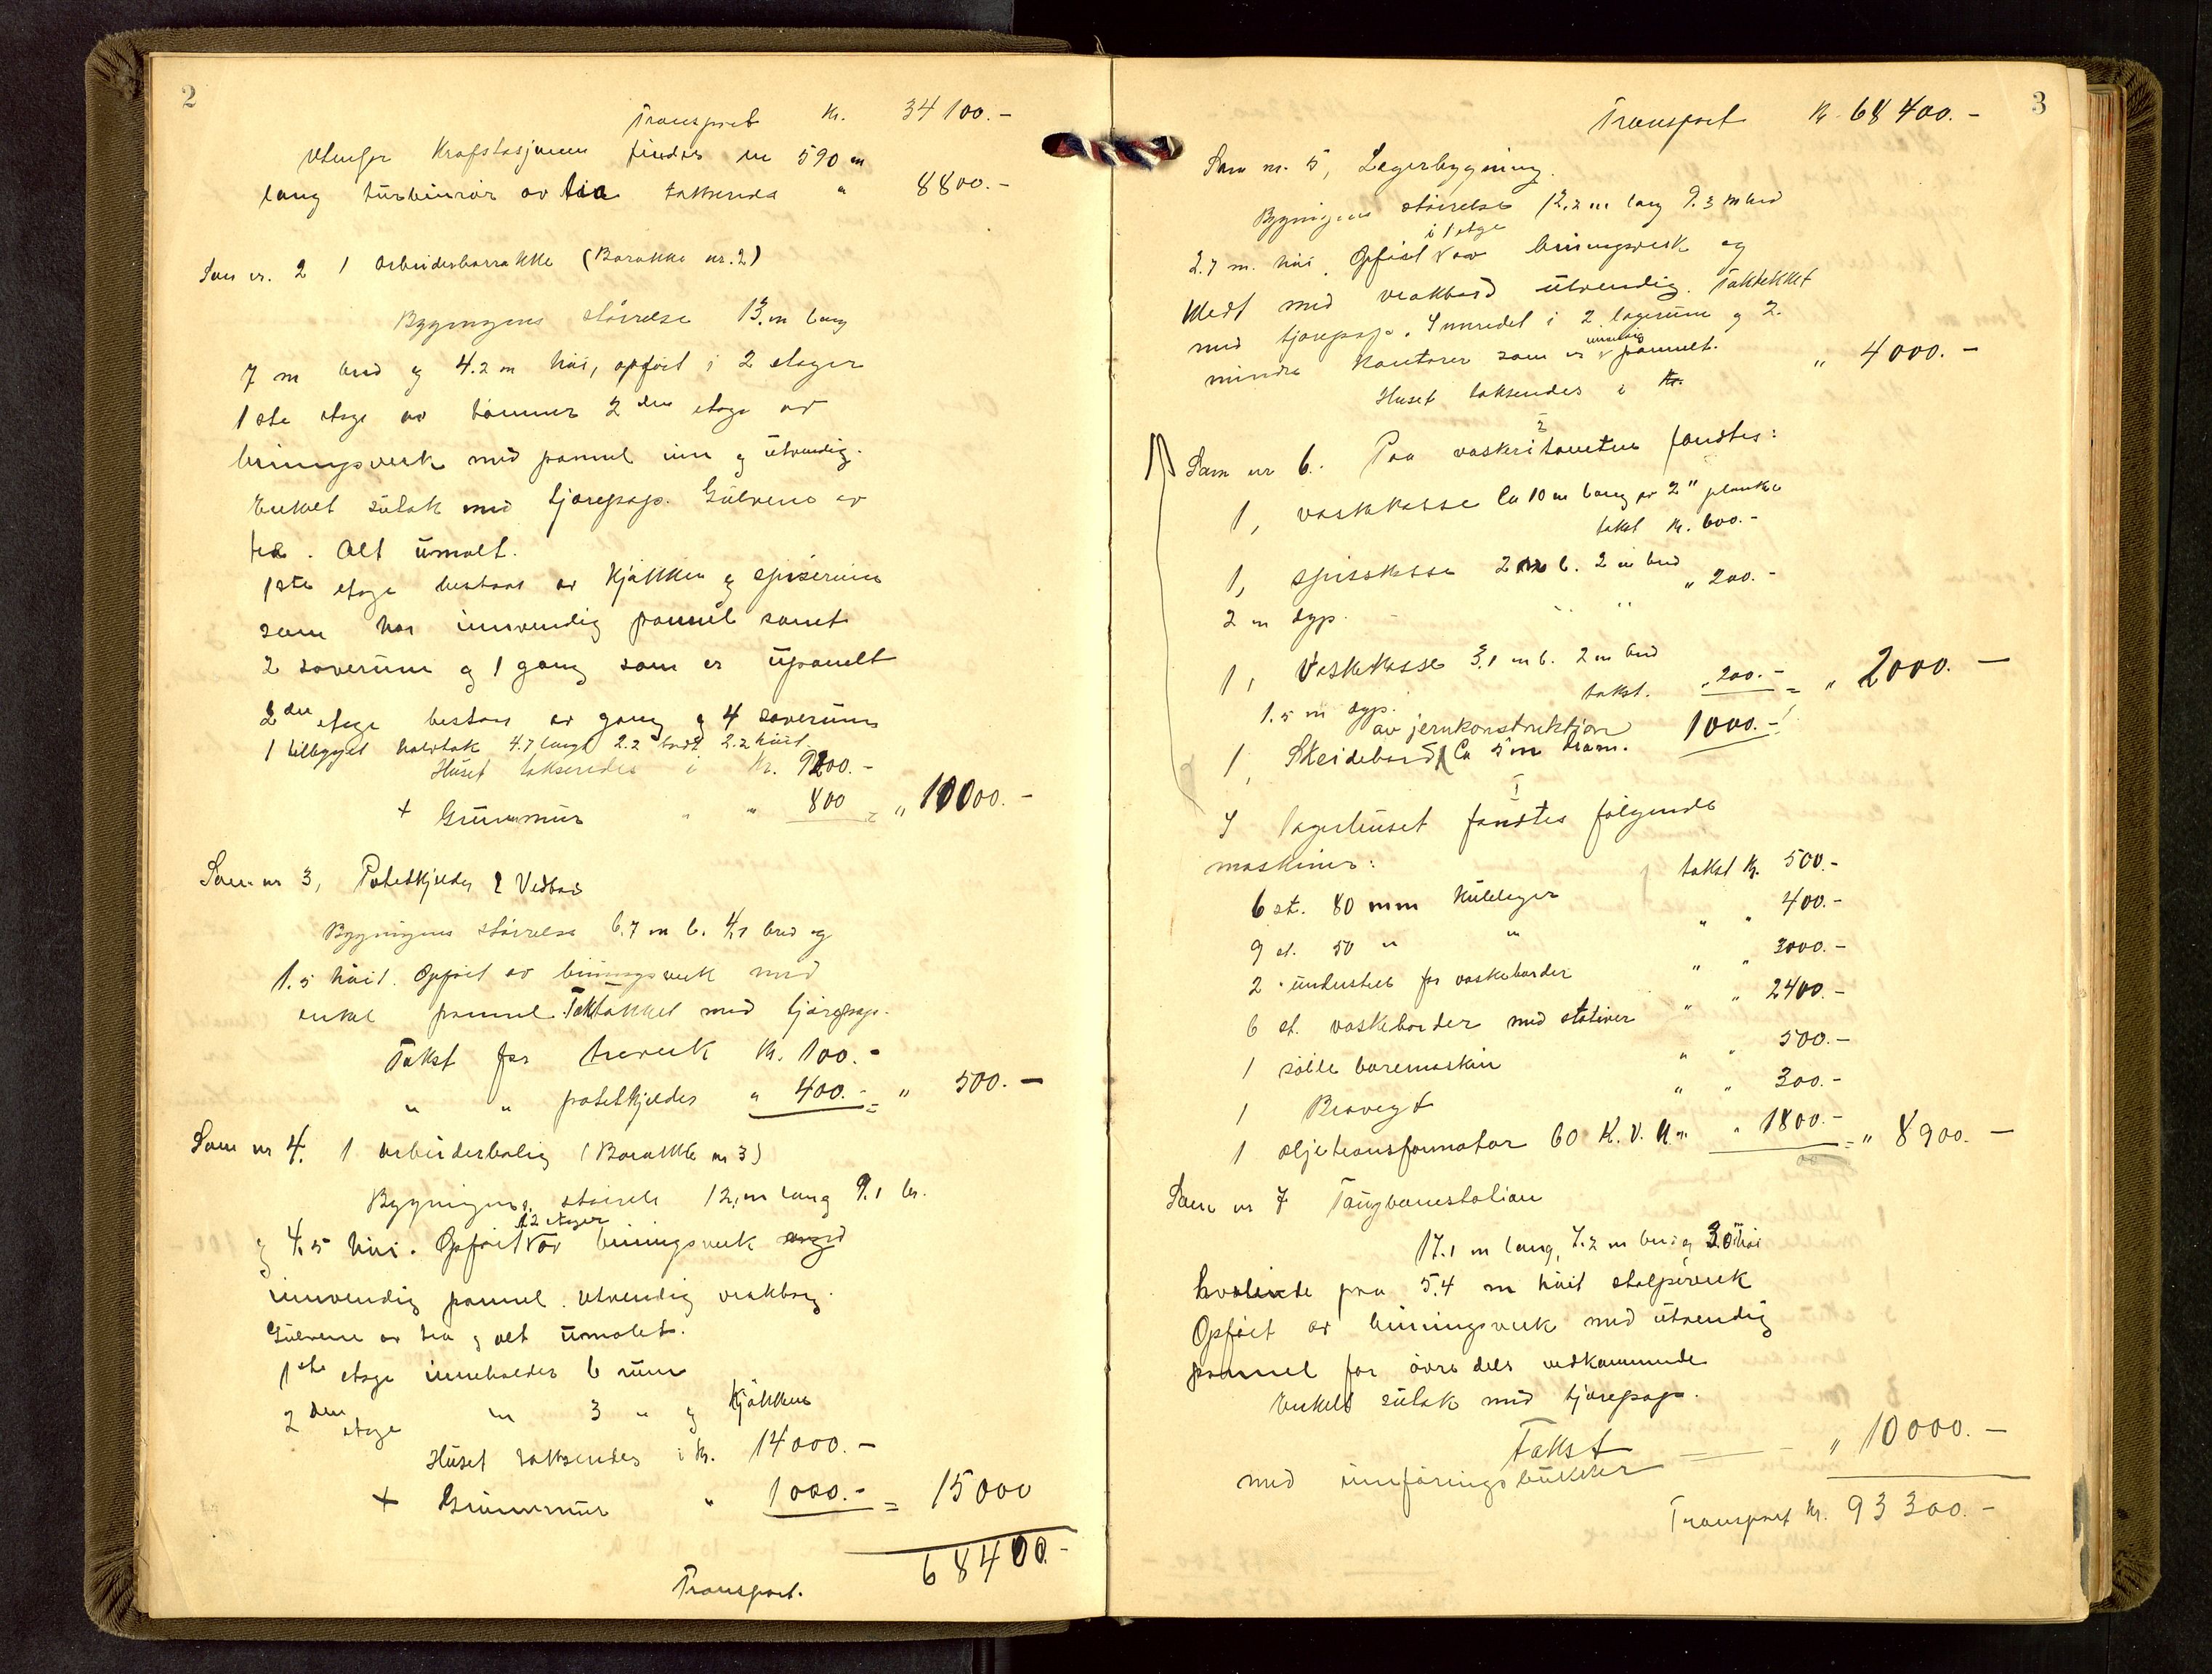 2
Transport Kr. 34 100.-
Utenfor Krafstasjonen findes en 590 m
lang turbinrør av træ takseredes " 8800.-
Som nr. 2 1 Arbeiderbarrakke (Barakke nr. 2)
Bygningens størrelse 13. m lang
7 m bred og 4.2 m høi, opført i 2 etager
1ste etage av tømmer 2den etage av
binningsverk med pannel inn og utvendig.
Enkelt sutak med tjærepap. Gulvene av
træ. Alt umalt.
1ste etage bestaar av Kjøkken og spiserum
som har innvendig pannel samt
2 soverum og 1 gang som er upanelt
2den etage bestaar av gang og 4 soverum
1 tilbygget halvtak 4.7 langt 2.2 bredt 2.2 høit.
Huset takseredes i Kr. 9200.-
+ Grunnmur " " 800 = " 10000.-
Som nr 3, Potetkjelder & Vedbod
Bygningens størrelse 6.7 m l. 4.1 bred og
1.5 høit. Opført av binningsverk med
enkel pannel. Taktækket med tjærepap.
Takst for treverk Kr. 100.-
" " potetkjelder " 400.- = " 500.-
Som nr 4. 1 arbeiderbolig (Barakke nr 3)
Bygningens størrelse 12. m lang 9.1 br.
i 2 etager
og 4.5 høi. Opført av binningsverk med
innvendig pannel. Utvendig vrakbord.
Gulvene av træ og alt umalet.
1ste etage inneholder 6 rum
2den etage " 3 " og Kjøkken
Huset takseredes i Kr. 14000.-
+ Grunnmur " 1000.- = 15000
68400.-
Transport.
3
Transport Kr. 68 400.-
Som nr. 5, Lagerbygning.
Bygningens størrelse 12.2 m lang 9.3 m bred
i 1 etage
2.7 m. høi. Opført av binningsverk og
kledt med vrakbord utvendig. Taktekket
med tjærepap. Innredet i 2 lagerum og 2.
innvendig
mindre kontorer som er pannelt.
Huset takseredes i Kr. " 4000.-
Som nr 6. Paa vaskeritomten fandtes:
1, vaskekasse Ca 10 m lang av 2" planke
takst Kr. 600.-
1, spisskasse 2 m l. 2 m bred
2 m dyp. " " " 200.-
1, Vaskekasse 3.1 m l. 2 m bred
1.5 m dyp. takst. " 200.- = " 2000.-
av jernkonstruktjon
1, Skeidebord Ca 5 m diam. 1000.-
I lagerhuset fandtes følgende
maskiner:
6 st. 80 mm Kullager takst Kr. 500.-
9 st. 50 " " " " 400.-
2 " understel for vaskeborder " " 3000.-
6 st. vaskeborder med stativer " " 2400.-
1 søile boremaskin " " 500.-
1 Brovegt " " 300.-
1 oljetransformator 60 K.V.A. " " 1800.- = " 8900.-
Som nr 7 Taugbanestation
17.1 m lang, 7.2 m bred og 3.0 m høi
hvilende paa 5.4 m høit stolpeverk
Opført av binningsverk med utvendig
pannel for øvre dels vedkommende
Enkelt sutak med tjærepap.
Takst " 10000.-
med innføringsbukker
Transport Kr. 93 300.-